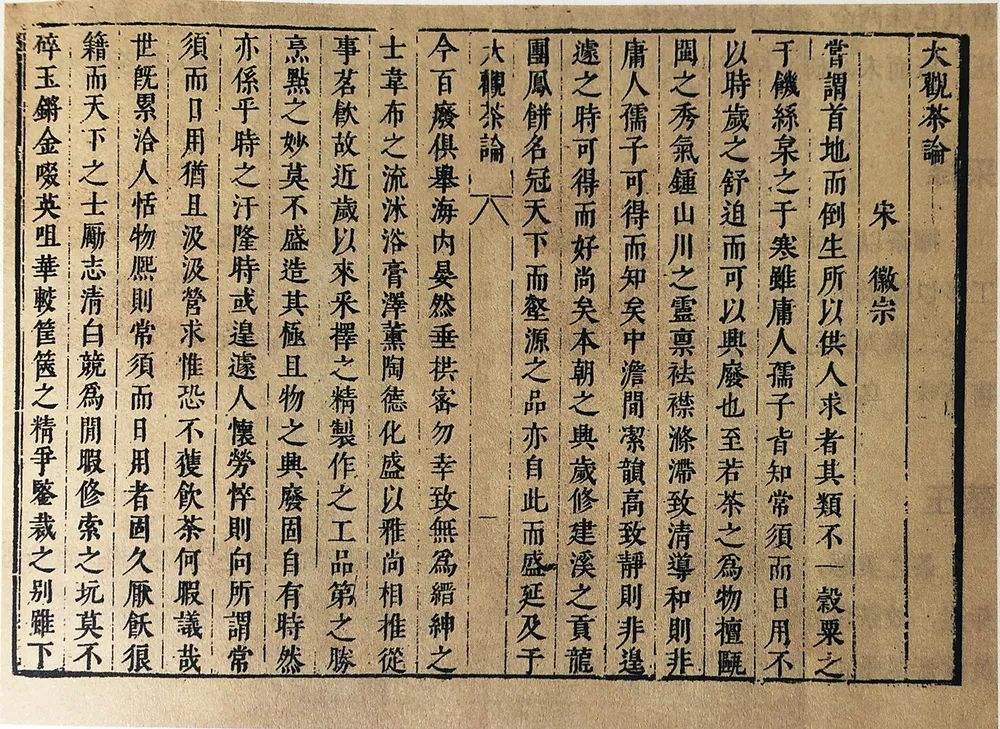 大觀茶論
宋 徽宗
嘗謂首地而倒生所以供人求者其類不一穀粟之
于饑絲枲之于寒雖庸人孺子皆知常須而日用不
以時歲之舒迫而可以興廢也至若茶之爲物擅甌
閩之秀氣鍾山川之靈禀袪襟滌滯致清導和則非
庸人孺子可得而知矣中澹閒潔韻高致靜則非遑
遽之時可得而好尚矣本朝之興歲修建溪之貢龍
團鳳餅名冠天下而壑源之品亦自此而盛延及于
大觀茶論 一
今百廢俱舉海内晏然垂拱密勿幸致無爲縉紳之
士韋布之流沐浴膏澤薰陶德化盛以雅尚相推從
事茗飲故近歲以來采擇之精製作之工品第之勝
烹點之妙莫不盛造其極且物之興廢固自有時然
亦係乎時之汙隆時或遑遽人懷勞悴則向所謂常
須而日用猶且汲汲營求惟恐不獲飲茶何暇議哉
世既累洽人恬物熈則常須而日用者固久厭飫狼
籍而天下之士勵志清白競爲閒暇修索之玩莫不
碎玉鏘金啜英咀華較筐篋之精爭鑒裁之别雖下